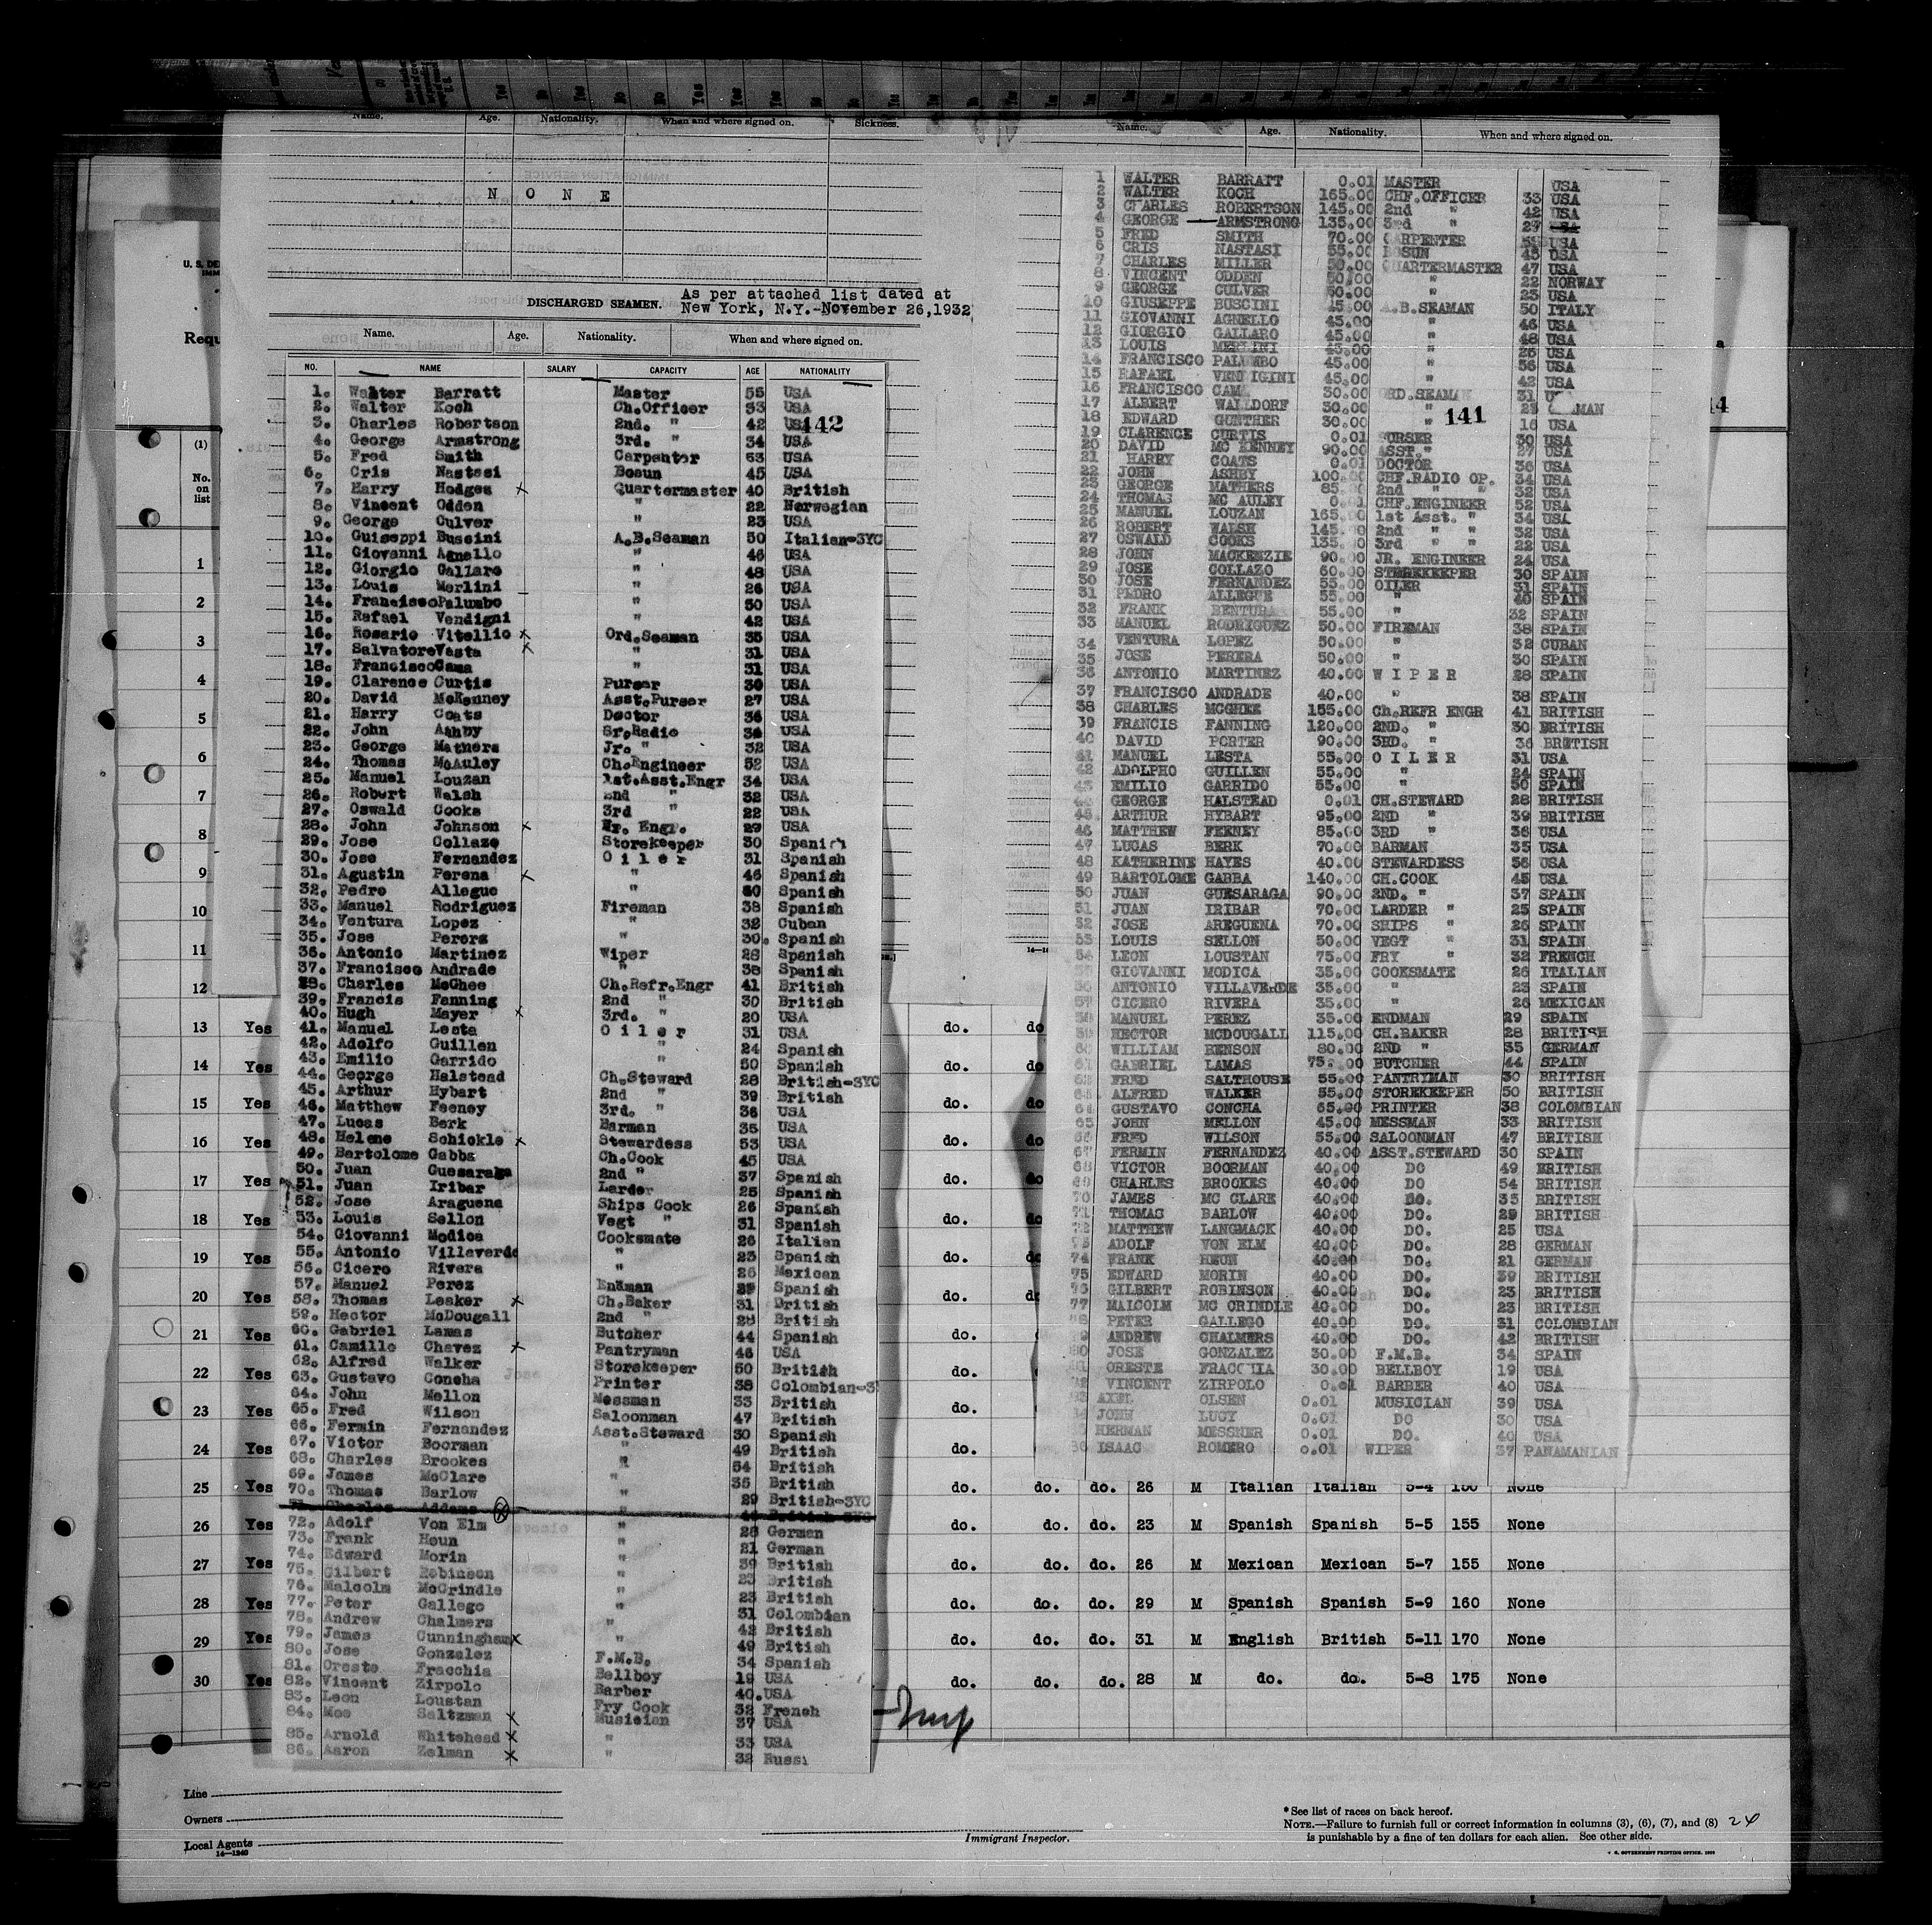 Name. Age. Nationality. When and where signed on. Sickness.
N O N E
DISCHARGED SEAMEN. As per attached list dated at
New York, N.Y.-November 26,1932
Name. Age. Nationality. When and where signed on.
NO. NAME SALARY CAPACITY AGE NATIONALITY
142
1. Walter Barratt Master 55 USA
2. Walter Koch Ch.Officer 33 USA
3. Charles Robertson 2nd. " 42
4. George Armstrong 3rd. " 34 USA
5. Fred Smith Carpenter 63 USA
6. Cris Nastasi Bosun 45 USA
7. Harry Hodges x Quartermaster 40 British
8. Vincent Odden " 22 Norwegian
9. George Culver " 23 USA
10. Guiseppi Buscini A.B.Seaman 50 Italian-3YC
11. Giovanni Agnello " 46 USA
12. Giorgio Gallaro " 48 USA
13. Louis Merlini " 26 USA
14. Francisco Palumbo " 50 USA
15. Rafael Vendigni " 42 USA
16. Rosario Vitellio x Ord.Seaman 35 USA
17. Salvatore Vasta x " 31 USA
18. Francisco Cama " 31 USA
19. Clarence Curtis Purser 30 USA
20. David McKenney Asst.Purser 27 USA
21. Harry Coats Doctor 36 USA
22. John Ashby Sr.Radio 34 USA
23. George Mathers Jr. " 32 USA
24. Thomas McAuley Ch.Engineer 52 USA
25. Manuel Louzan 1st.Asst.Engr 34 USA
26. Robert Walsh 2nd " 32 USA
27. Oswald Cooks 3rd " 22 USA
28. John Johnson x Jr. Engr. 29 USA
29. Jose Collazo Storekeeper 30 Spanish
30. Jose Fernandez O i l e r 31 Spanish
31. Agustin Perena x " 46 Spanish
32. Pedro Allegue " 40 Spanish
33. Manuel Rodriguez Fireman 38 Spanish
34. Ventura Lopez " 32 Cuban
35. Jose Perera " 30. Spanish
36. Antonio Martinez Wiper 28 Spanish
37. Francisco Andrade " 38 Spanish
38. Charles McGhee Ch.Refr.Engr 41 British
39. Francis Fanning 2nd " 30 British
40. Hugh Mayer x 3rd. " 20 USA
41. Manuel Lesta O i l e r 31 USA
42. Adolfo Guillen " 24 Spanish
43. Emilio Garrido " 50 Spanish
44. George Halstead Ch.Steward 28 British-3YC
45. Arthur Hybart 2nd " 39 British
46. Matthew Feeney 3rd. " 36 USA
47. Lucas Berk Barman 35 USA
48. Helene Schickle x Stewardess 53 USA
49. Bartolome Gabba Ch.Cook 45 USA
50. Juan Guesaraga 2nd " 37 Spanish
51. Juan Iribar Larder 25 Spanish
52. Jose Araguena Ships Cook 26 Spanish
53. Louis Sellon Vegt " 31 Spanish
54. Giovanni Modica Cooksmate 26 Italian
55. Antonio Villaverde " 23 Spanish
56. Cicero Rivera " 26 Mexican
57. Manuel Perez Endman 29 Spanish
58. Thomas Leaker x Ch.Baker 31 British
59. Hector McDougall 2nd " 28 British
60. Gabriel Lamas Butcher 44 Spanish
61. Camille Chavez x Pantryman 46 USA
62. Alfred Walker Storekeeper 50 British
63. Gustavo Concha Printer 38 Colombian-3
64. John Mellon Messman 33 British
65. Fred Wilson Saloonman 47 British
66. Fermin Fernandez Asst.Steward 30 Spanish
67. Victor Boorman " 49 British
68. Charles Brookes " 54 British
69. James McClare " 35 British
70. Thomas Barlow " 29 British-3YC
71. Charles Addams x " 44 British-3YC
72. Adolf Von Elm " 28 German
73. Frank Heun " 21 German
74. Edward Morin " 39 British
75. Gilbert Robinson " 23 British
76. Malcolm McCrindle " 23 British
77. Peter Gallego " 31 Colombian
78. Andrew Chalmers " 42 British
79. James Cunningham x " 49 British
80. Jose Gonzalez F.M.B. 34 Spanish
81. Oreste Fracchia Bellboy 19 USA
82. Vincent Zirpolo Barber 40. USA
83. Leon Loustan Fry Cook 32 French
84. Moe Saltzman x Musician 37 USA
85. Arnold Whitehead x " 33 USA
86. Aaron Zelman x " 32 Russi
Name. Age. Nationality. When and where signed on.
141
1 WALTER BARRATT 0.01 MASTER USA
2 WALTER KOCH 165.00 CHF.OFFICER 33 USA
3 CHARLES ROBERTSON 145.00 2nd " 42 USA
4 GEORGE ARMSTRONG 135.00 3rd " 27 USA
5 FRED SMITH 70.00 CARPENTER USA
6 CRIS NASTASI 55.00 BOSUN 45 USA
7 CHARLES MILLER 50.00 QUARTERMASTER 47 USA
8 VINCENT ODDEN 50.00 " 22 NORWAY
9 GEORGE CULVER 50.00 " 23 USA
10 GIUSEPPE BUSCINI 45.00 A.B.SEAMAN 50 ITALY
11 GIOVANNI AGNELLO 45.00 " 46 USA
12 GIORGIO GALLARO 45.00 " 48 USA
13 LOUIS MERLINI 45.00 " 26 USA
14 FRANCISCO PALUMBO 45.00 " 56 USA
15 RAFAEL VENDIGINI 45.00 " 42 USA
16 FRANCISCO CAMA 30.00 ORD.SEAMAN 31
17 ALBERT WALLDORF 30.00 " 25
18 EDWARD GUNTHER 30.00 " 18 USA
19 CLARENCE CURTIS 0.01 PURSER 30 USA
20 DAVID MC KENNEY 90.00 ASST." 27 USA
21 HARRY COATS 0.01 DOCTOR 36 USA
22 JOHN ASHBY 100.00 CHF.RADIO OP. 34 USA
23 GEORGE MATHERS 85.00 2nd " " 32 USA
24 THOMAS MC AULEY 0.01 CHF.ENGINEER 52 USA
25 MANUEL LOUZAN 165.00 1st Asst. " 34 USA
26 ROBERT WALSH 145.00 2nd " " 32 USA
27 OSWALD COOKS 135.00 3rd " " 22 USA
28 JOHN MACKENZIE 90.00 JR. ENGINEER 24 USA
29 JOSE COLLAZO 60.00 STOREKEEPER 30 SPAIN
30 JOSE FERNANDEZ 55.00 OILER 31 SPAIN
31 PEDRO ALLEGUE 55.00 " 40 SPAIN
32 FRANK BENTURA 55.00 " 32 SPAIN
33 MANUEL RODRIGUEZ 50.00 FIREMAN 38 SPAIN
34 VENTURA LOPEZ 50.00 " 32 CUBAN
35 JOSE PERERA 50.00 " 30 SPAIN
36 ANTONIO MARTINEZ 40.00 W I P E R 28 SPAIN
37 FRANCISCO ANDRADE 40.00 " 38 SPAIN
38 CHARLES MCGHEE 155.00 Ch.REFR ENGR 41 BRITISH
39 FRANCIS FANNING 120.00 2ND. " 30 BRITISH
40 DAVID PORTER 90.00 3RD. " 36 BRITISH
41 MANUEL LESTA 55.00 O I L E R 31 USA
42 ADOLPHO GUILLEN 55.00 " 24 SPAIN
43 EMILIO GARRIDO 55.00 " 50 SPAIN
44 GEORGE HALSTEAD 0.01 CH.STEWARD 28 BRITISH
45. ARTHUR HYBART 95.00 2ND " 39 BRITISH
46 MATTHEW FEENEY 85.00 3RD " 36 USA
47 LUCAS BERK 70.00 BARMAN 35 USA
48 KATHERINE HAYES 40.00 STEWARDESS 56 USA
49 BARTOLOME GABBA 140.00 CH.COOK 45 USA
50 JUAN GUESARAGA 90.00 2ND. " 37 SPAIN
51 JUAN IRIBAR 70.00 LARDER " 25 SPAIN
52 JOSE AREGUENA 70.00 SHIPS " 26 SPAIN
53 LOUIS SELLON 50.00 VEGT " 31 SPAIN
54 LEON LOUSTAN 75.00 FRY " 32 FRENCH
55 GIOVANNI MODICA 35.00 COOKSMATE 26 ITALIAN
56 ANTONIO VILLAVERDE 35.00 " 23 SPAIN
57 CICERO RIVERA 35.00 " 26 MEXICAN
58 MANUEL PEREZ 35.00 ENDMAN 29 SPAIN
59 HECTOR MCDOUGALL 115.00 CH.BAKER 28 BRITISH
60 WILLIAM BENSON 80.00 2ND " 35 GERMAN
61 GABRIEL LAMAS 75.00 BUTCHER 44 SPAIN
62 FRED SALTHOUSE 55.00 PANTRYMAN 30 BRITISH
63. ALFRED WALKER 55.00 STOREKEEPER 50 BRITISH
64 GUSTAVO CONCHA 65.00 PRINTER 38 COLOMBIAN
65 JOHN MELLON 45.00 MESSMAN 33 BRITISH
66 FRED WILSON 55.00 SALOONMAN 47 BRITISH
67 FERMIN FERNANDEZ 40.00 ASST.STEWARD 30 SPAIN
68 VICTOR BOORMAN 40.00 DO 49 BRITISH
69 CHARLES BROOKES 40.00 DO 54 BRITISH
70 JAMES MC CLARE 40.00 DO. 35 BRITISH
71 THOMAS BARLOW 40.00 DO. 29 BRITISH
72 MATTHEW LANGMACK 40.00 DO. 25 USA
73 ADOLF VON ELM 40.00 DO. 28 GERMAN
74 FRANK HEUN 40.00 DO. 21 GERMAN
75 EDWARD MORIN 40.00 DO. 39 BRITISH
76 GILBERT ROBINSON 40.00 DO. 23 BRITISH
77 MALCOLM MC CRINDLE 40.00 DO. 23 BRITISH
78 PETER GALLEGO 40.00 DO. 31 COLOMBIAN
79 ANDREW CHALMERS 40.00 DO. 42 BRITISH
80 JOSE GONZALEZ 30.00 F.M.B. 34 SPAIN
81 ORESTE FRACCHIA 30.00 BELLBOY 19 USA
82 VINCENT ZIRPOLO 0.01 BARBER 40 USA
83 AXEL OLSEN 0.01 MUSICIAN 39 USA
84 JOHN LUCY 0.01 DO 30 USA
85 HERMAN MESSNER 0.01 DO. 40 USA
86 ISAAC ROMERO 0.01 WIPER 37 PANAMANIAN
U. S. DE
Requ
(1)
No.
on
list
1
2
3
4
5
6
7
8
9
10
11
12
13 Yes do. do
14 Yes do. do
15 Yes do. do
16 Yes do. do
17 Yes do. do
18 Yes do. do
19 Yes do. do
20 Yes do. do
21 Yes do.
22 Yes do.
23 Yes do.
24 Yes do.
25 Yes do. do. do. 26 M Italian Italian 5-4 150 None
26 Yes do. do. do. 23 M Spanish Spanish 5-5 155 None
27 Yes do. do. do. 26 M Mexican Mexican 5-7 155 None
28 Yes do. do. do. 29 M Spanish Spanish 5-9 160 None
29 Yes do. do. do. 31 M English British 5-11 170 None
30 Yes do. do. do. 28 M do. do. 5-8 175 None
Line
Owners
Local Agents
14-1240
Immigrant Inspector.
*See list of races on back hereof.
NOTE.—Failure to furnish full or correct information in columns (3), (6), (7), and (8) 24
is punishable by a fine of ten dollars for each alien. See other side.